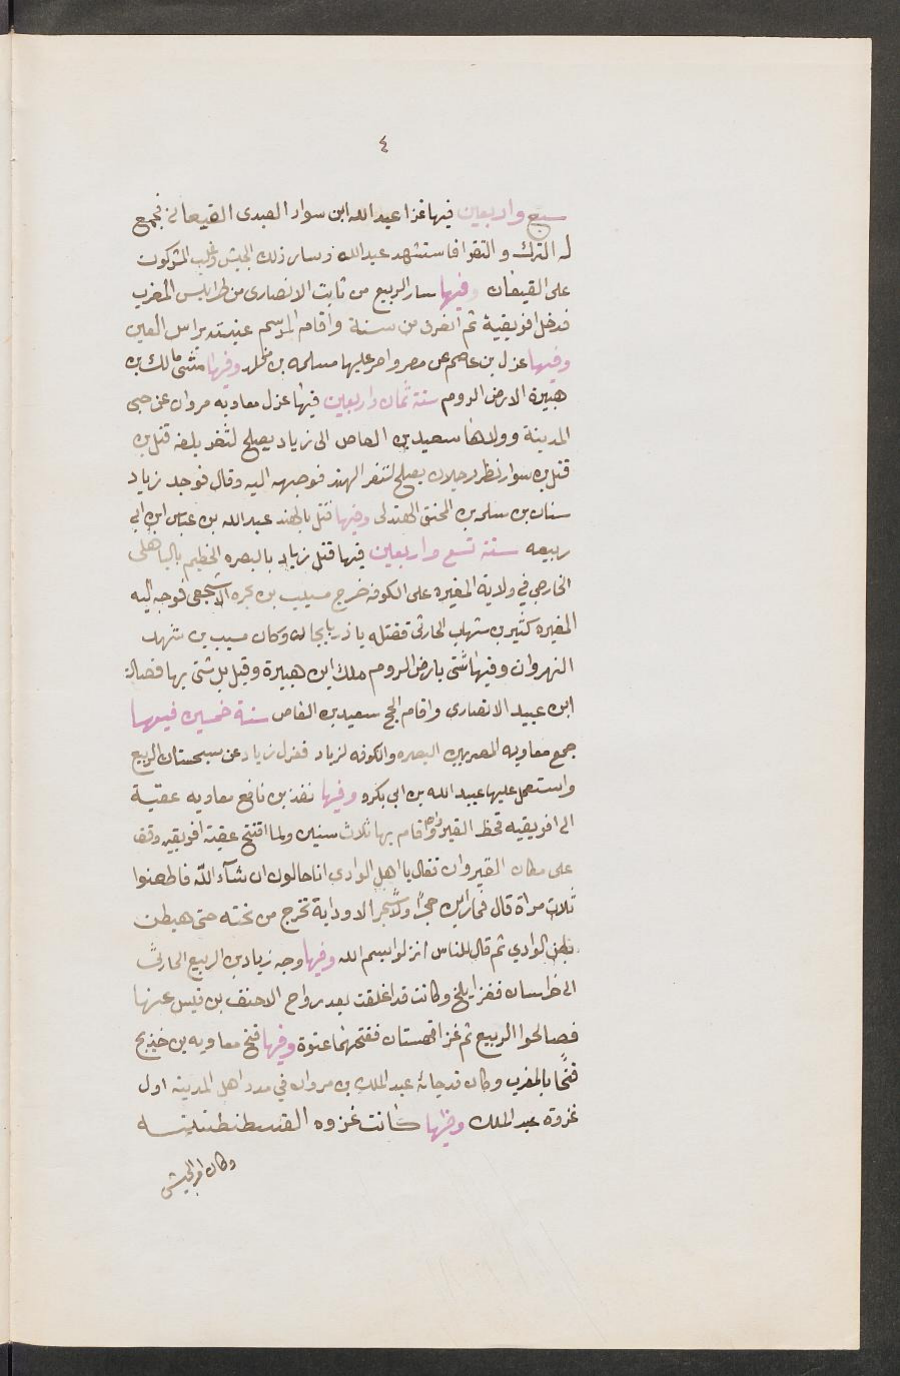 ٤
سبع واربعين فيها غزا عبد الله ابن سوار العبدى القيعان فجمع
له الترك والتقوا فاستشهد عبد الله وسار ذلك الجيش وغلب المشركون
على القيقان وفيها سار الربيع من ثابت الانصارى من طرابلس المغرب
فدخل افريقية ثم انصرف من سنة واقام الموسم عنبسة
وفيها عزل بن عاصم عن مصر وامر عليها مسلمه بن مخلد وفيها شتى مالك بن
هبيرة الارض الروم سنة ثمان واربعين فيها عزل معاويه مروان عن
المدينة وولاها سعيد بن العاص الى زياد يصلح لثغر بلغه قتل بن
قتل بن سوار نظر رجلان يصلح لثغر الهند فوجهه اليه وقال فوجد زياد
سنان بن سلمه بن المحنق الهندلى وفيها قتل بالهند عبد الله بن عباس ابن ابي
ربيعه سنة تسع واربعين فيها قتل زياد بالبصره الخطيم الباهلى
الخارجي في ولاية المغيرة على الكوفه خرج مسيب بن بجره الاشجعى فوجه اليه
المغيره كثير بن شهاب الحارثى فقتله باذربايجان وكان مسيب بن شهد
النهروان وفيها شتى بارض الروم ملك ابن هبيرة وقيل بل شتى بها فضالة
ابن عبيد الانصارى واقام الحج سعيد بن العاص سنة خمسين فيها
جمع معاويه المصرين البصره والكوفه لزياد فعزل زياد عن سجستان الربيع
واستعمل عليها عبيد الله بن ابى بكره وفيها نفذ بن نافع معاويه عقبة
الى افريقيه فخط القيروان واقام بها ثلاث سنين ولما افتتح عقبة افريقيه وقف
على مكان القيروان فقال يا اهل الوادى انا حالون ان شآء الله فاظعنوا
ثلاث مراة قال فما راين حجرًا ولا شجر الا وداية تخرج من تحته حتى هبطن
بطن الوادي ثم قال للناس انزلوا بسم الله وفيها وجه زياد بن الربيع الحارثى
الى خراسان فغزا بلخ وكانت قد اغلقت بعد رواح الاحنف بن قيس عنها
فصالحوا الربيع ثم غزا قهستان ففتحها عنوة وفيها فتح معاويه بن خديج
فتحًا بالمغرب وكان قد جائه عبد الملك بن مروان في مدد اهل المدينه اول
غزوة عبد الملك وفيها كانت غزوه القسطنطينيه
وكان امر الجيش